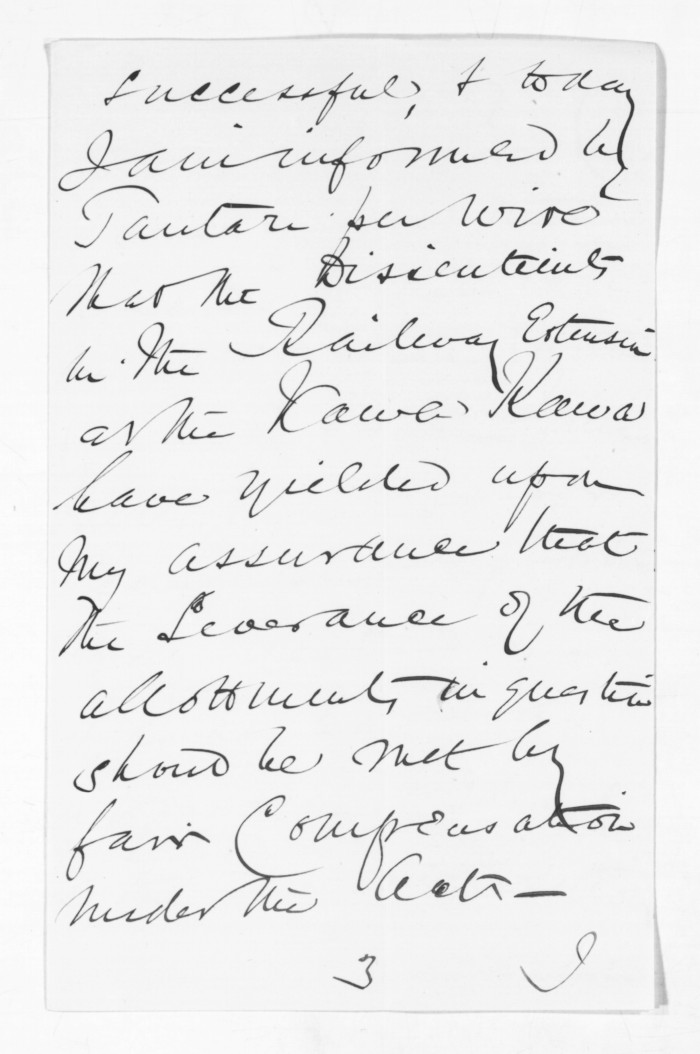 successful, & today
I am informed by
Tautari per wire
that the Dissentients
in the Railway Extension
at the Kawa Kawa
have yielded upon
my assurance that
the Severance of the
allottments in question
should be met by
fair Compensation
under the Act —
3 I